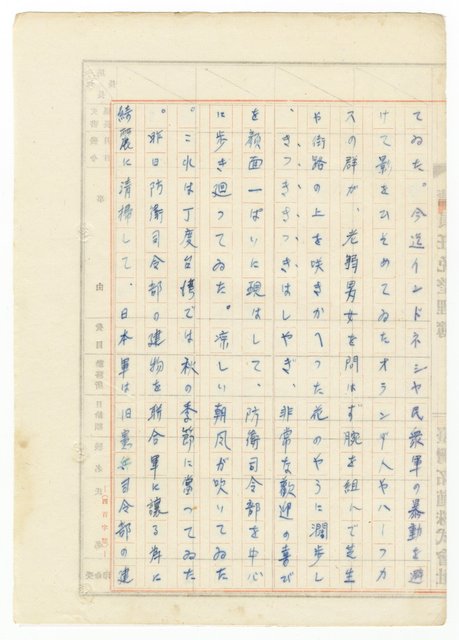 てゐた。今迄インドネシヤ民衆軍の暴動を避
けて影をひそめてゐたオランダ人やハーフカ
スの群が、老弱男女を問はず腕を組んで芝生
や街路の上を咲きかへつた花のやうに濶歩し
、きつ、きつきつはしやぎ、非常な歓迎の喜び
を顔面一ぱいに現はして、防衛司令部を中心
に歩き廻つてゐた。涼しい朝風が吹いてゐた
。これは丁度台湾では秋の季節に當つてゐた
。昨日防衛司令部の建物を聯合軍に譲る為に
綺麗に清掃して、日本軍は旧憲兵司令部の建